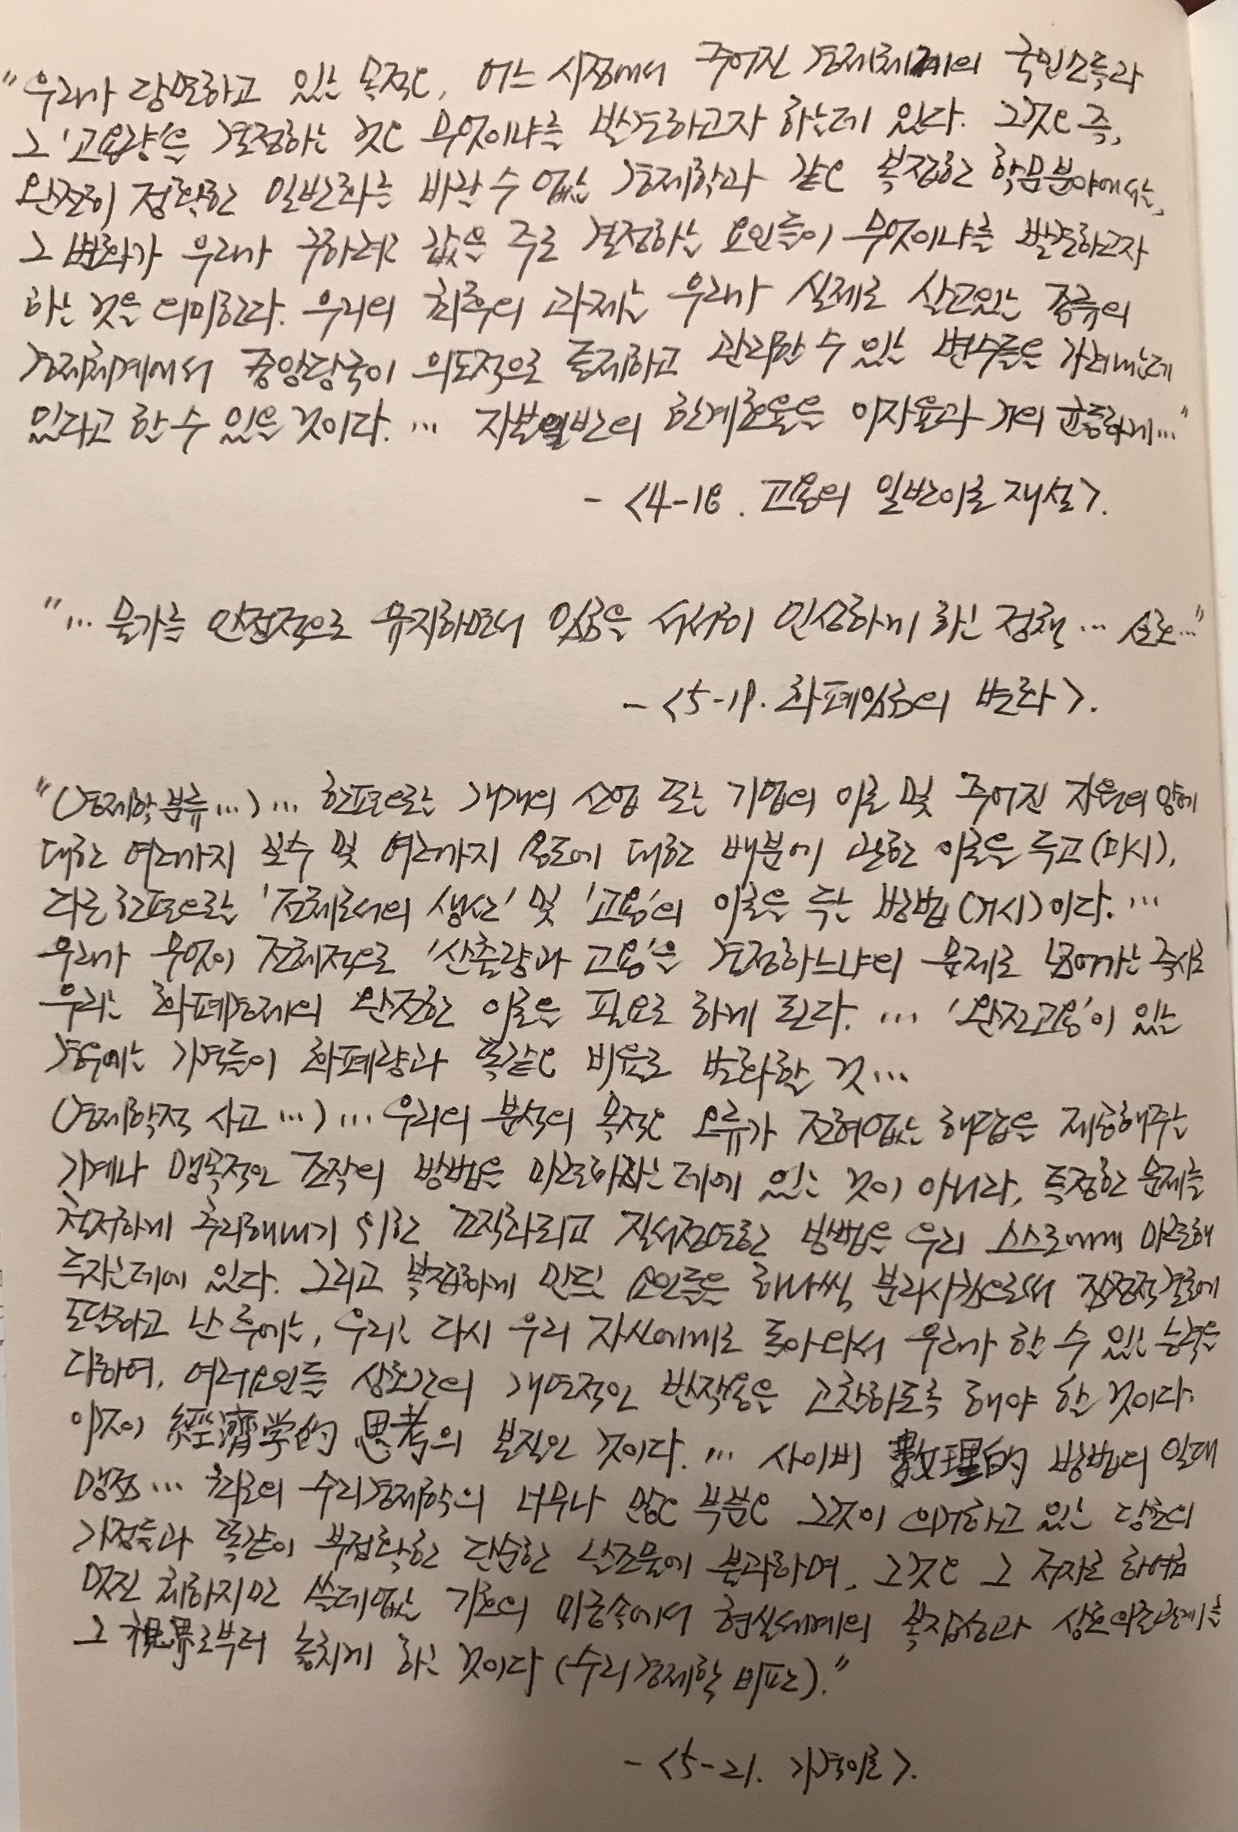 "우리가 당면하고 있는 목적은, 어느 시점에서 주어진 경제체계의 국민소득과
그 '고용량'을 결정하는 것은 무엇이냐를 발견하고자 하는데 있다. 그것은 즉,
완전히 정확한 일반화를 바랄 수 없는 경제학과 같은 복잡한 학문분야에서는,
그 변화가 우리가 구하려는 값을 주로 결정하는 요인들이 무엇이냐를 발견하고자
하는 것을 의미한다. 우리의 최후의 과제는 우리가 실제로 살고있는 종류의
경제체계에서 중앙당국이 의도적으로 통제하고 관리할 수 있는 변수들을 가려내는데
있다고 할 수 있을 것이다. … 자본일반의 한계효율을 이자율과 거의 균등하게…"
- <4-18. 고용의 일반이론 재설>.
"… 물가를 안정적으로 유지하면서 임금을 서서히 인상하게 하는 정책 … 선호…"
- <5-19. 화폐임금의 변화>.
"(경제학 분류…)… 한편으로는 개개의 산업 또는 기업의 이론 및 주어진 자원의 양에
대한 여러가지 보수 및 여러가지 용도에 대한 배분에 관한 이론을 두고(미시),
다른 한편으로는 '전체로서의 생산' 및 '고용'의 이론을 두는 방법(거시)이다. …
우리가 무엇이 전체적으로 '산출량과 고용'을 결정하느냐의 문제로 넘어가는 즉시로
우리는 화폐경제의 완전한 이론을 필요로 하게 된다. … '완전고용'이 있는
경우에는 가격들이 화폐량과 똑같은 비율로 변화할 것…
(경제학적 사고…)… 우리의 분석의 목적은 오류가 전혀없는 해답을 제공해주는
기계나 맹목적인 조작의 방법을 마련하려는데에 있는 것이 아니라, 특정한 문제를
철저하게 추리해내기 위한 조직화되고 질서정연한 방법을 우리 스스로에게 마련해
두자는데에 있다. 그리고 복잡하게 만드는 요인들을 하나씩 분리시킴으로써 잠정적결론에
도달하고 난 후에는, 우리는 다시 우리 자신에게로 돌아와서 우리가 할 수 있는 능력을
다하여, 여러요인들 상호간의 개연적인 반작용을 고찰하도록 해야 할 것이다.
이것이 経濟学的 思考의 본질인 것이다. … 사이비 數理的 방법의 일대
맹점… 최근의 수리경제학의 너무나 많은 부분은 그것이 의거하고 있는 당초의
가정들과 똑같이 부정확한 단순한 날조물에 불과하며, 그것은 그 저자로 하여금
멋진 체하지만 쓸데없는 기호의 미궁속에서 현실세계의 복잡성과 상호의존관계를
그 視界로부터 놓치게 하는 것이다 (수리경제학 비판)."
- <5-21. 가격이론>.